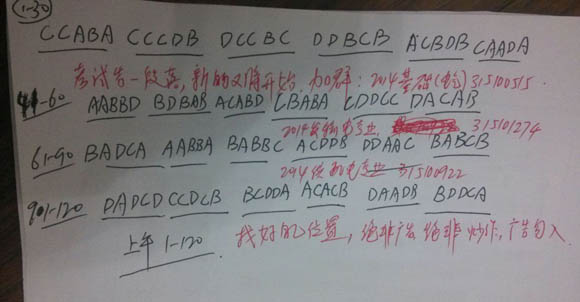 1-30
CCABA CCCDB DCCBC DDBCB ACBDB CAADA
考试告一段落,新的又将开始.加群:2014基础(电)315100515.
41-60 AABBD BDBAB ACABD CBABA CDDCC DACAB
2014 电专业 315101274
61-90 BADCA AABBA BABBC ACDDB DDAAC BABCB
2014 电专业 315100922
901-120 DADCD CCDCB BCDDA ACACB DAADB BDDCA
上午 1-120 找好自己位置,绝非广告绝非炒作,广告勿入